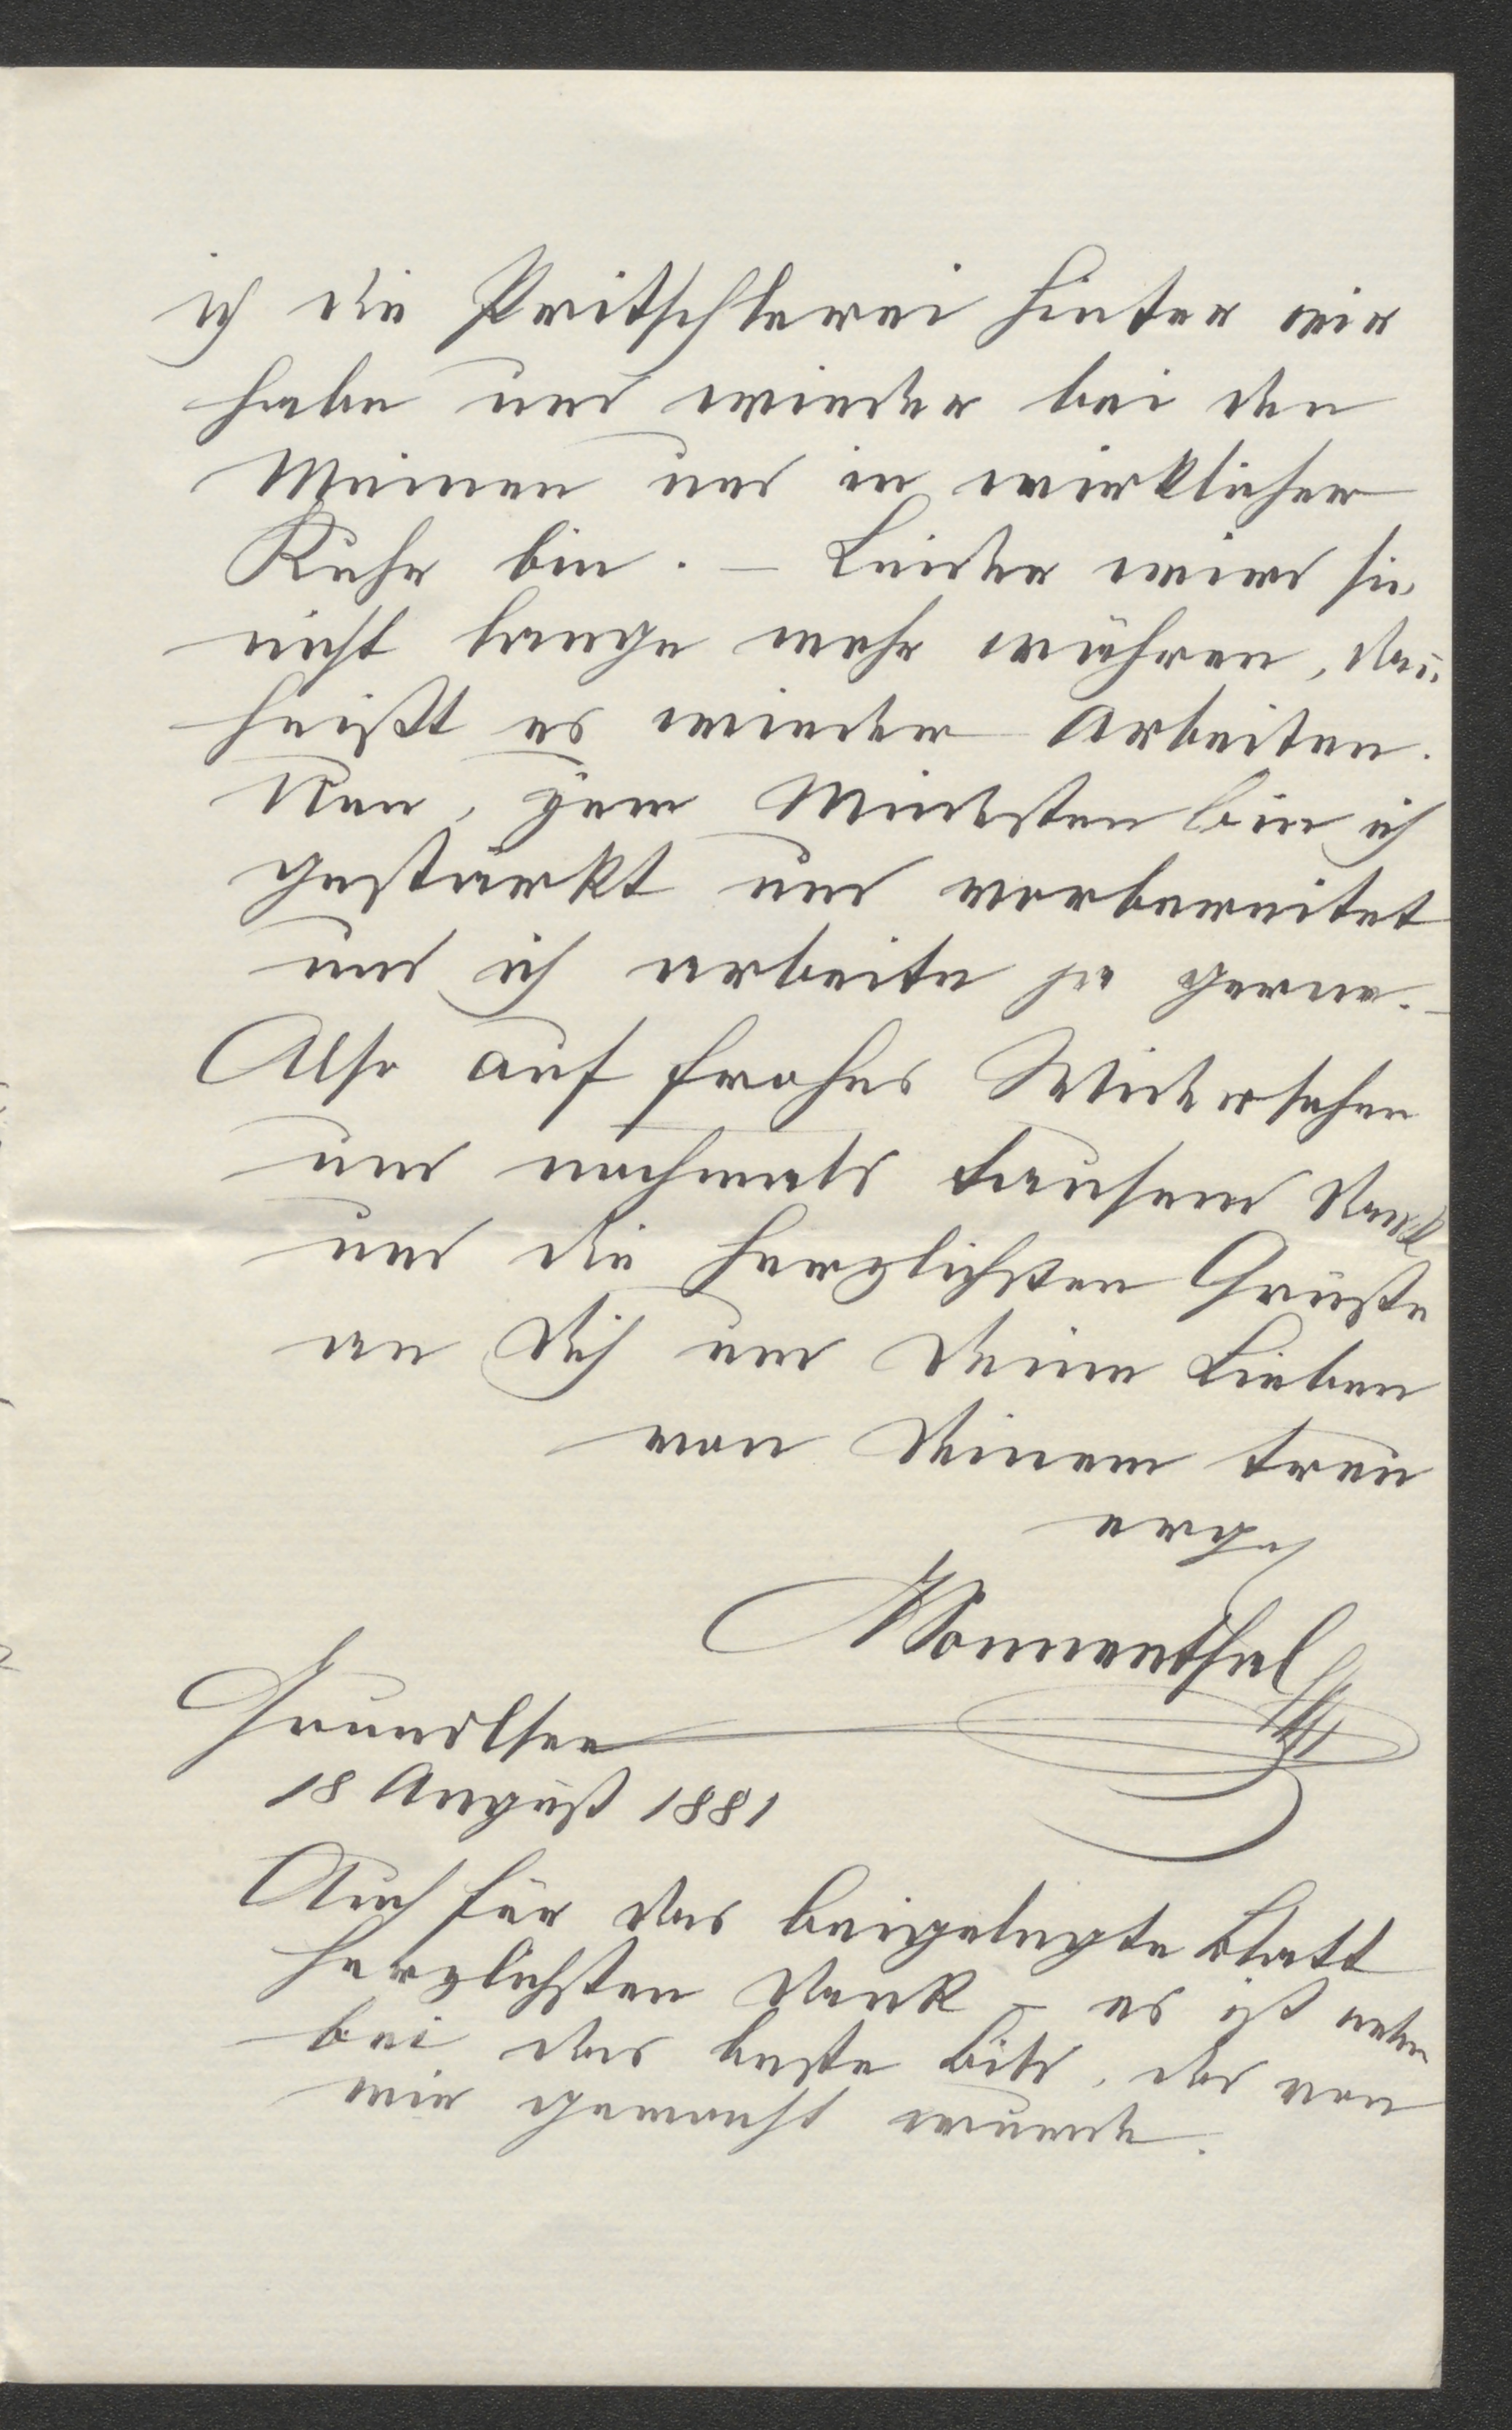 ich die Pritschlerei hinter mir
habe und wieder bei den
Meinen und in wirklicher
Ruhe bin. – Leider wird sie
nicht lange mehr währen, dañ
heißt es wieder Arbeiten.
Nun, zum Mindesten bin ich
gestärkt und vorbereitet
und ich arbeite ja gerne. –
Also auf frohes Wiedersehen
und nochmals tausend Dank
und die herzlichsten Grüße
an Dich und Deine Lieben
von Deinem treu
erg.
ASonnenthal
Grundlsee
18 August 1881
Auch für das beigelegte Blatt
herzlichsten Dank – es ist neben
bei das beste Bild, das von
mir gemacht wurde.